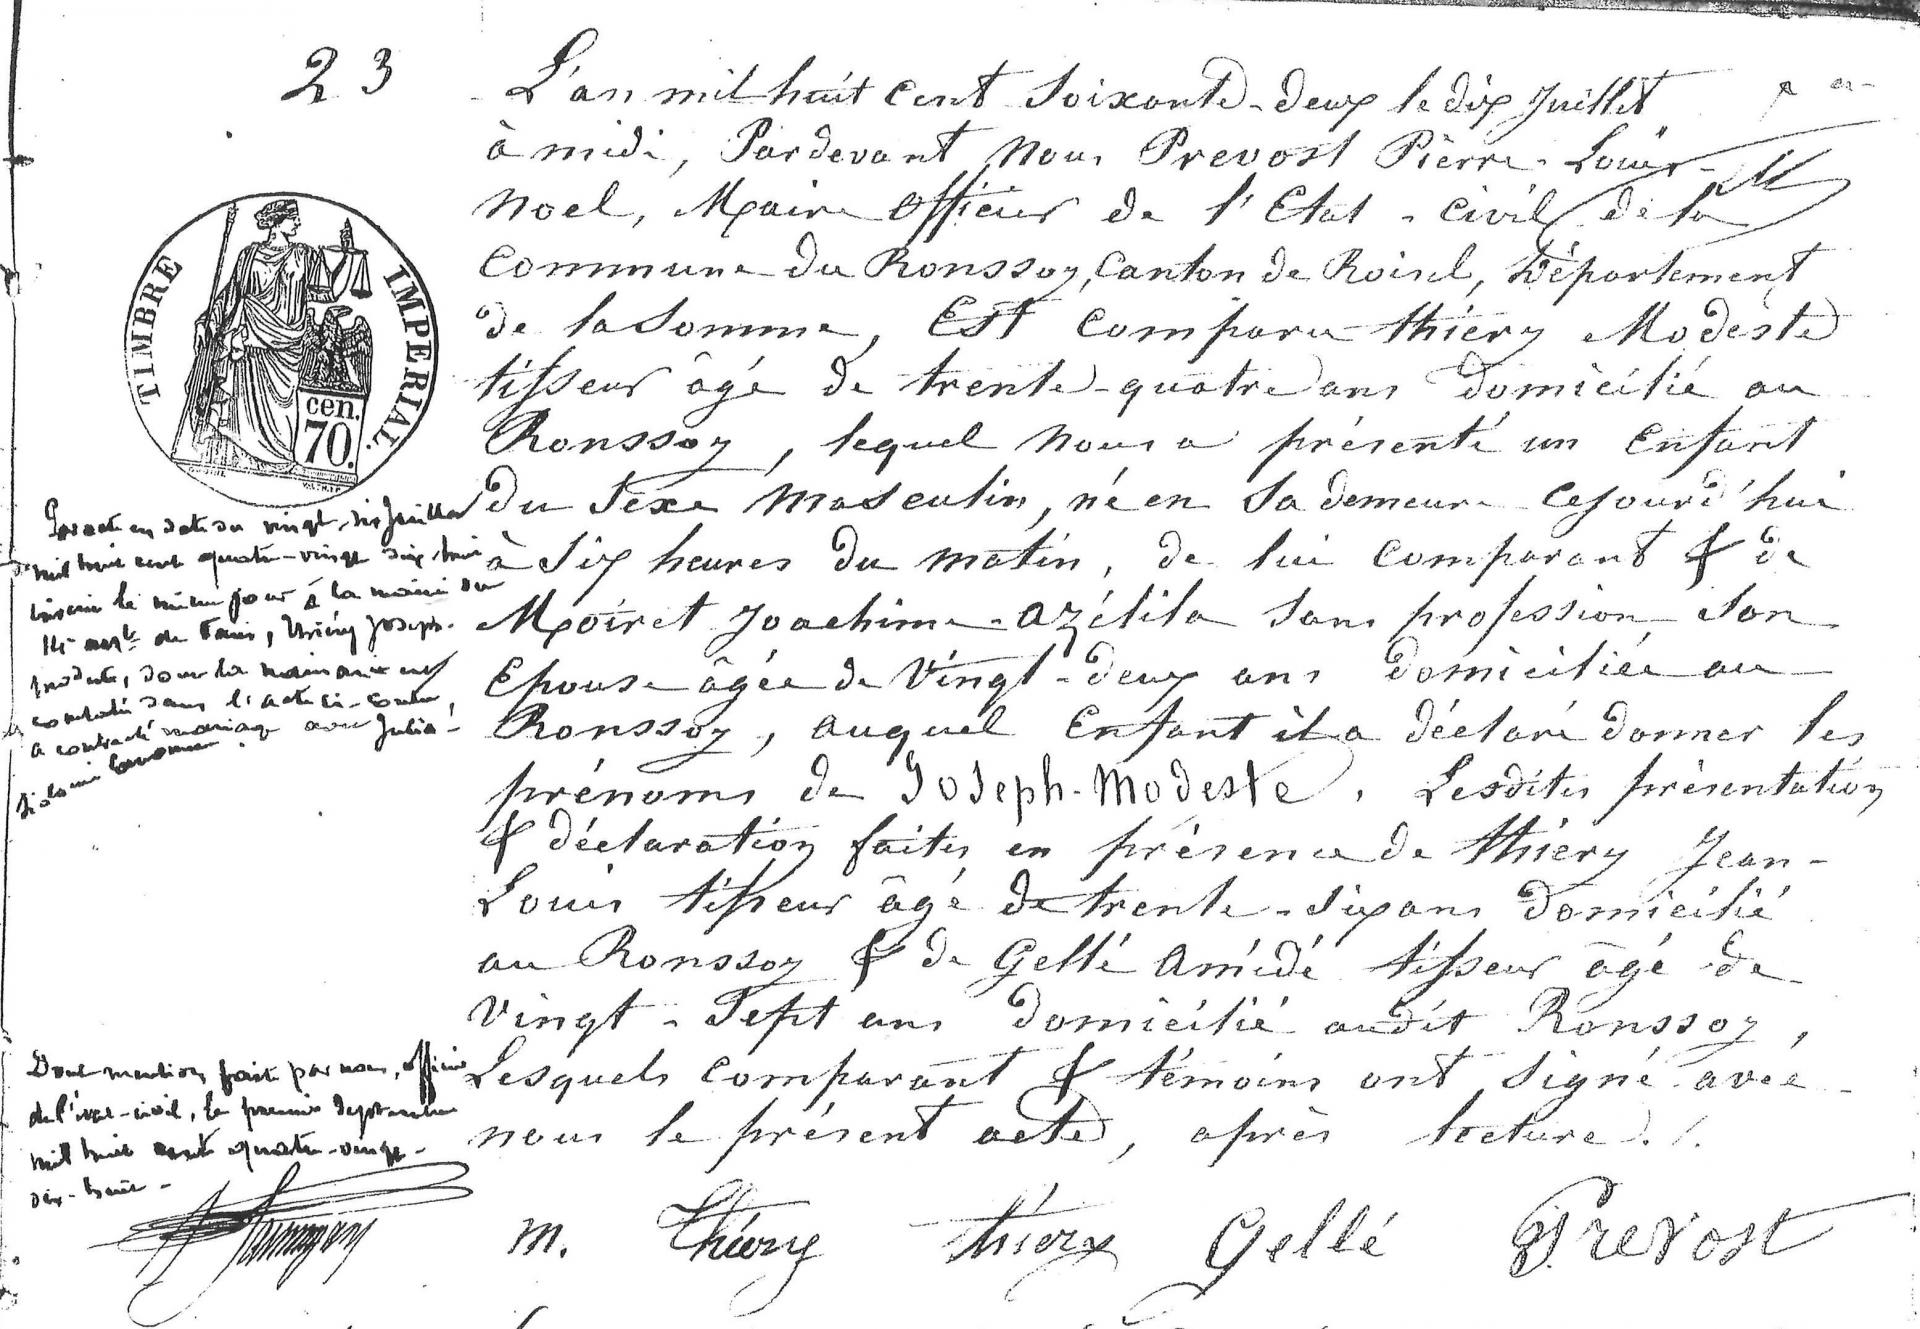 23
L'an mil huit cent soixante-deux le dix Juillet
à midi, Pardevant nous Prevost Pierre-Louis-
Noel, Maire officier de l'Etat-civil de la
commune du Ronssoy, Canton de Roisel, Département
de la Somme, Est comparu thiery Modeste
tisseur âgé de trente-quatre ans domicilié au
Ronssoy, lequel nous a présenté un Enfant
du Sexe Masculin, né en sa demeure cejourd'hui
à Six heures du matin, de lui comparant & de
Moiret Joachime-azélila sans profession, son
Epouse âgée de Vingt-deux ans domiciliée au
Ronssoy, auquel Enfant il a déclaré donner les
prénoms de Joseph-Modeste. Lesdites présentation
& déclaration faites en présence de thiery Jean-
Louis tisseur âgé de trente-six ans domicilié
au Ronssoy & de Gellé Amédé tisseur âgé de
Vingt-Sept ans domicilié audit Ronssoy,
Lesquels comparant & témoins ont signé avec
nous le présent acte, après lecture./.
TIMBRE IMPERIAL.
cen.
70.
Par acte en date du vingt-six Juillet
mil huit cent quatre-vingt dix-huit
inscrit le même jour à la mairie du
arrt. de Paris, Thiéry Joseph-
Modeste, dont la naissance est
constatée dans l'acte ci-contre,
a contracté mariage avec Julia-
Dont mention faite par nous, officier
de l'état-civil, le premier Septembre
mil huit cent quatre-vingt-
dix-huit-
M. Thiery thiery Gellé Prevost